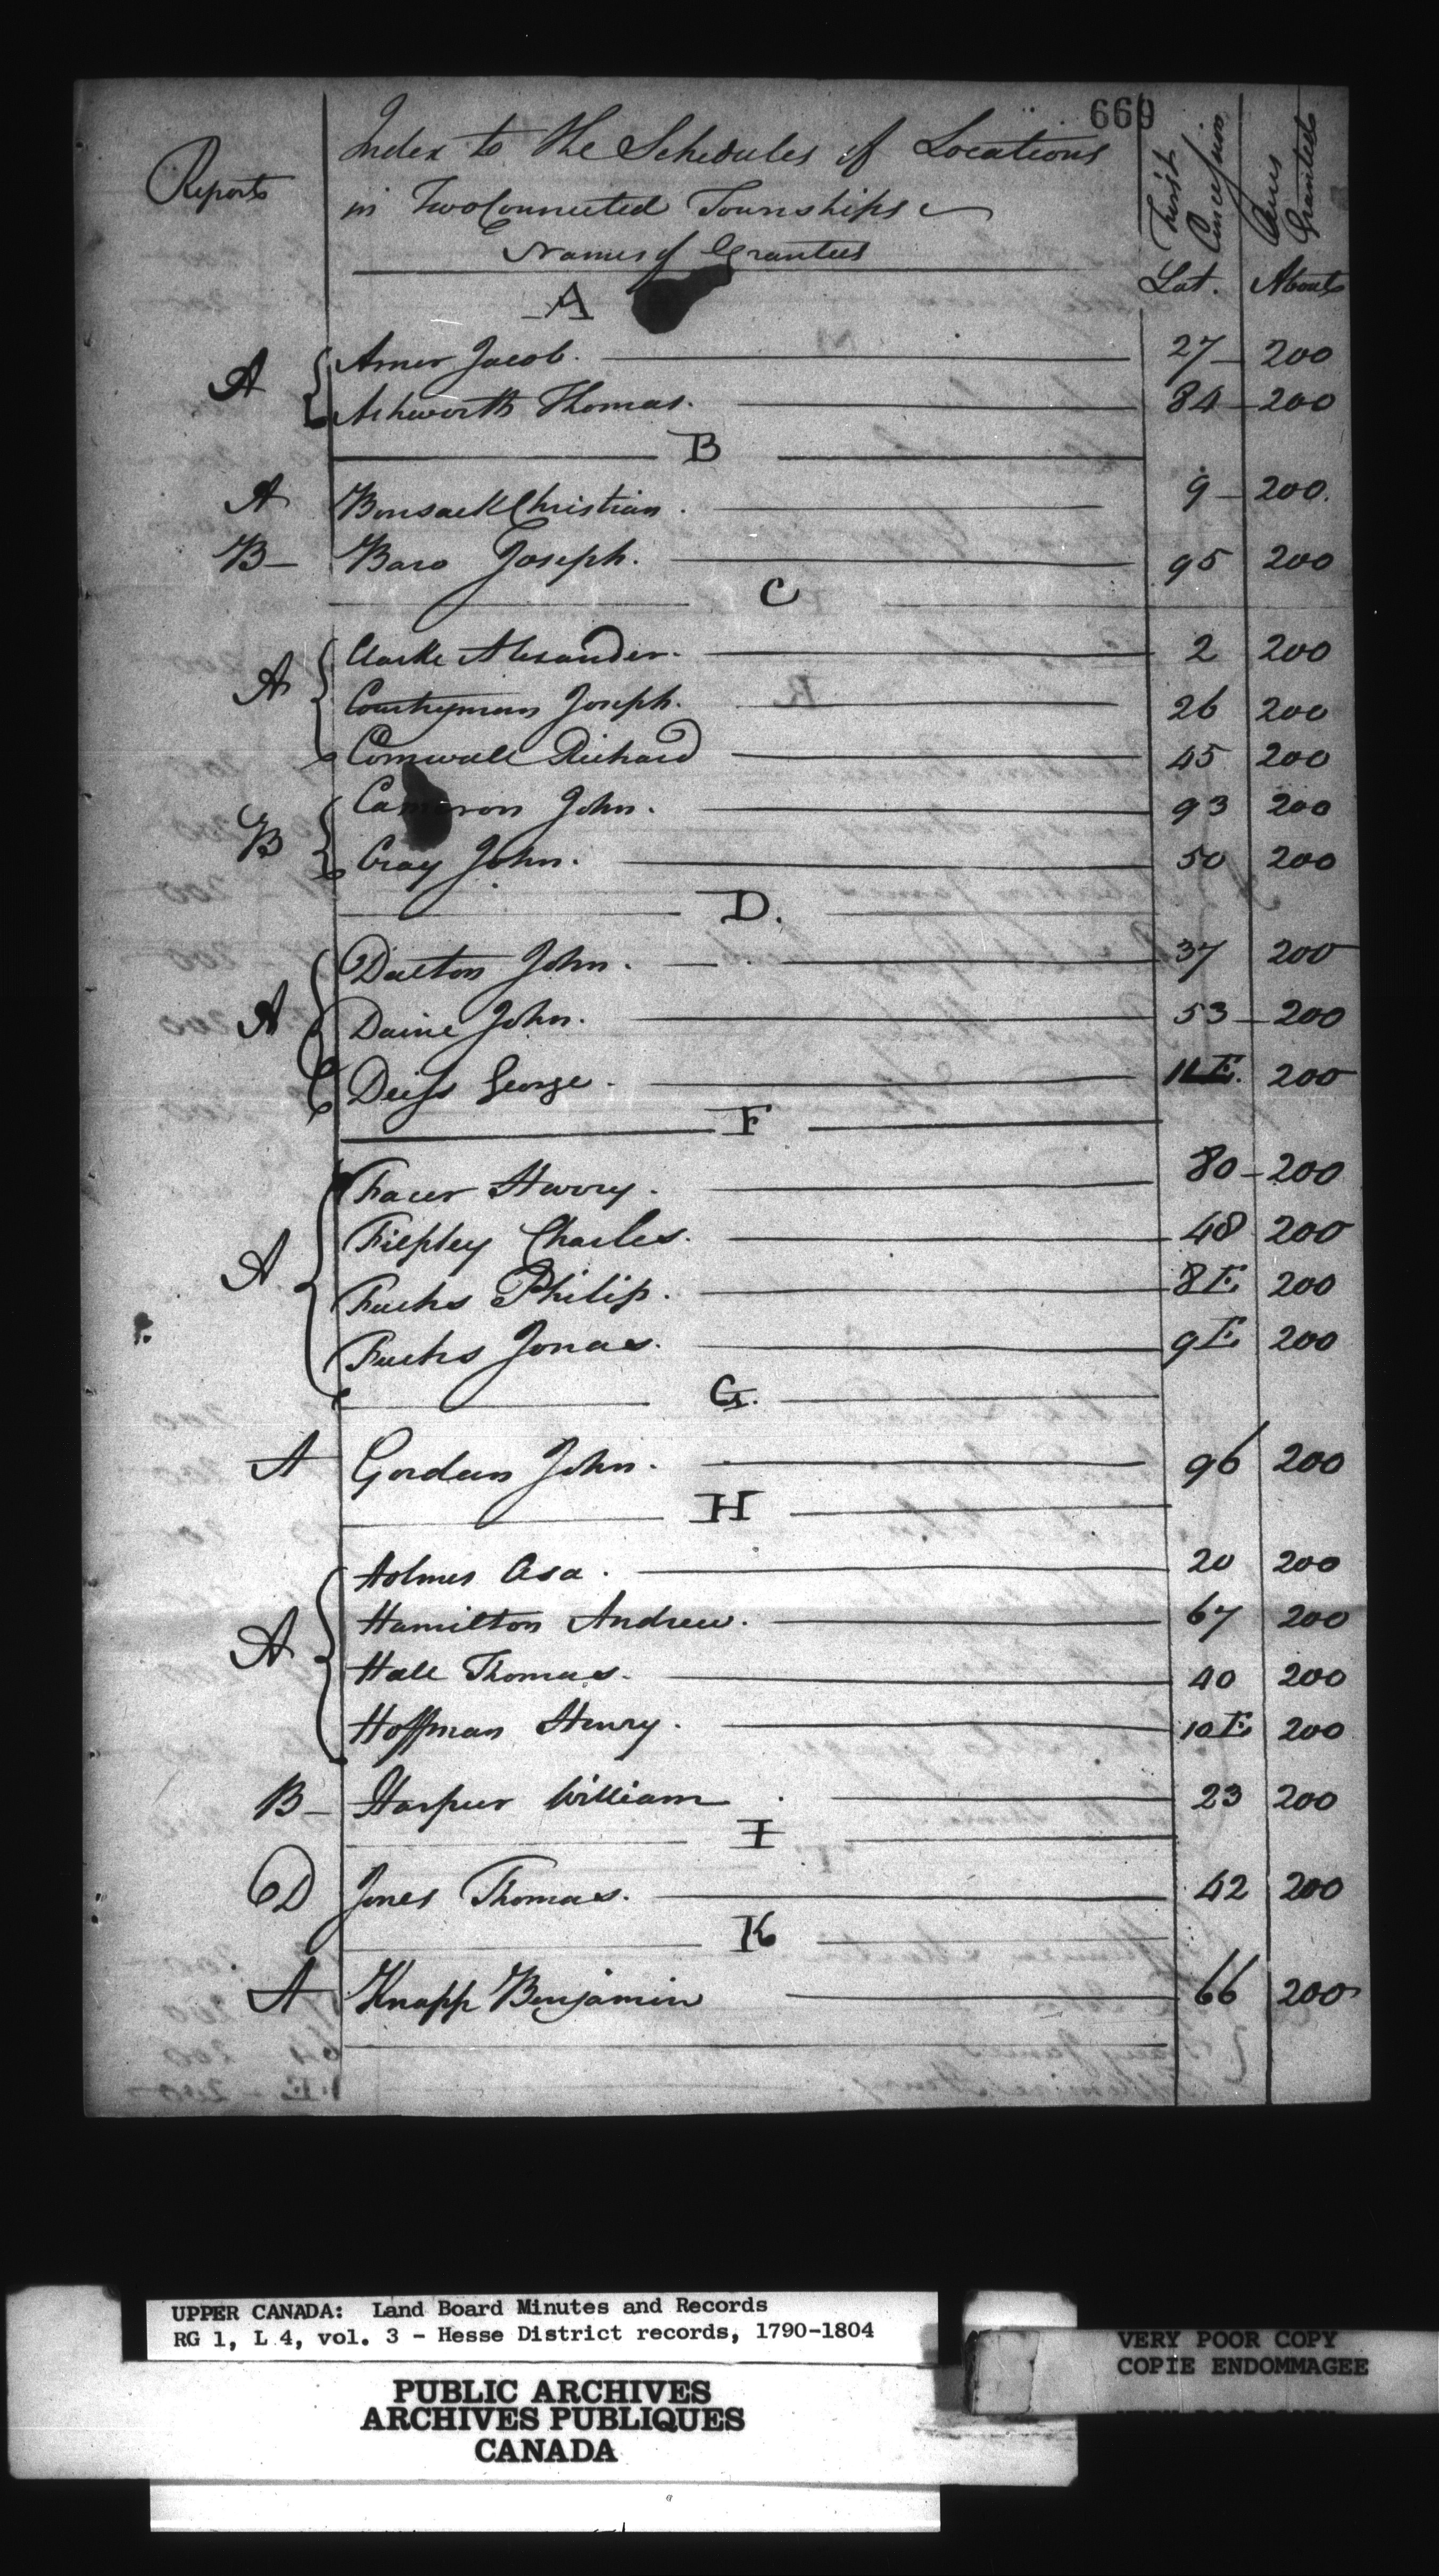 669
Reports
Index to the Schedules of Locations
in Two Connected Townships
Names of Grantees
First Concession
Acres Granted
Lot. Abouts
A
A Arner Jacob. 27 200
Ashworth Thomas. 84 200
B
A Bonsack Christian. 9 200.
B Baro Joseph. 95 200
C
A Clarke Alexander. 2 200
Countryman Joseph. 26 200
Cornwall Richard 45 200
B Cameron John. 93 200
Cray John. 50 200
D.
A Dalton John. 37 200
Daine John. 53 200
Deiss George. 11 E. 200
F
A Facer Harry. 80 200
Charles. 48 200
Fuchs Philip. 8 E 200
Fuchs Jonas. 9 E 200
G.
A Gordean John. 96 200
H
A Holmes Asa. 20 200
Hamilton Andrew. 67 200
Hall Thomas. 40 200
Hoffman Henry. 10 E 200
B Harpur William 23 200
I
D Jones Thomas. 42 200
K
A Knapp Benjamin 66 200
UPPER CANADA: Land Board Minutes and Records
RG 1, L 4, vol. 3 - Hesse District records, 1790-1804
PUBLIC ARCHIVES
ARCHIVES PUBLIQUES
CANADA
VERY POOR COPY
COPIE ENDOMMAGEE